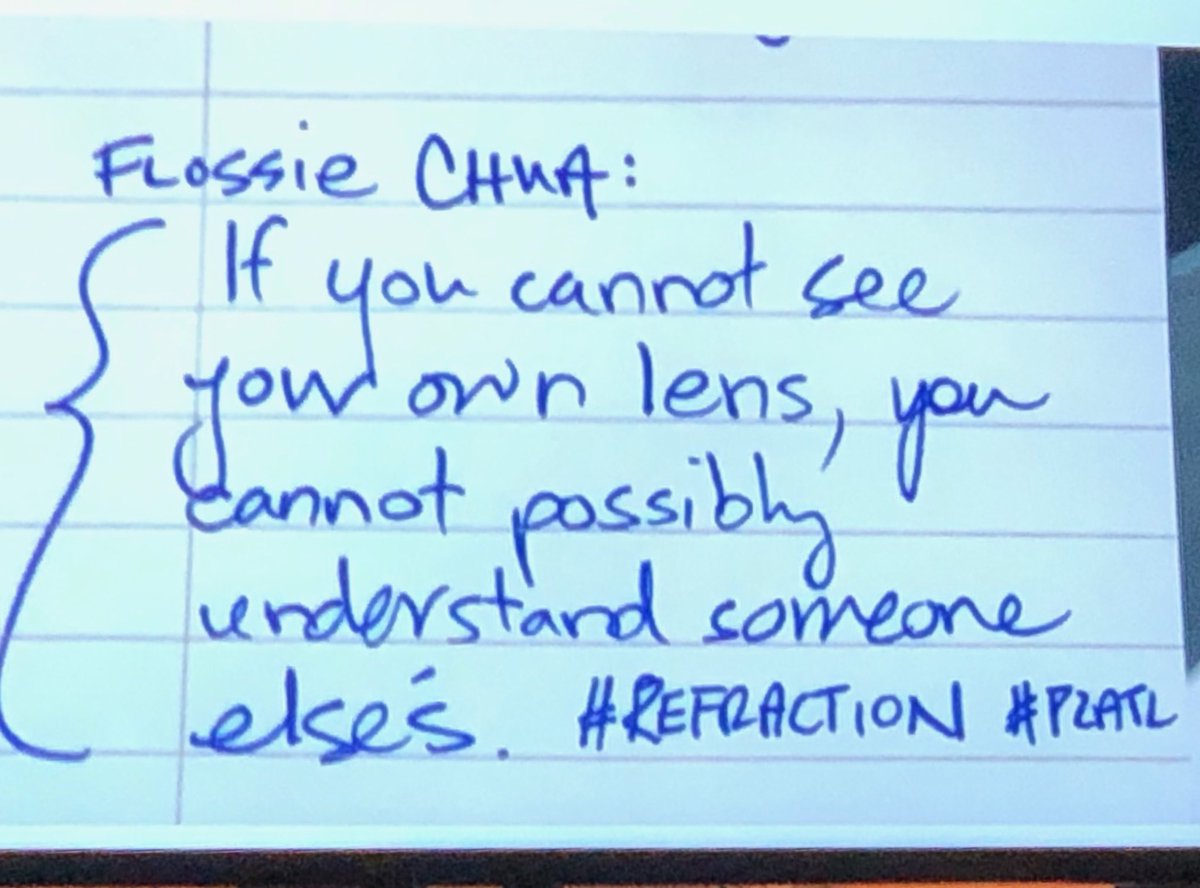 Flossie CHUA:
If you cannot see
your own lens, you
cannot possibly
understand someone
else's. #REFRACTION #PZATL